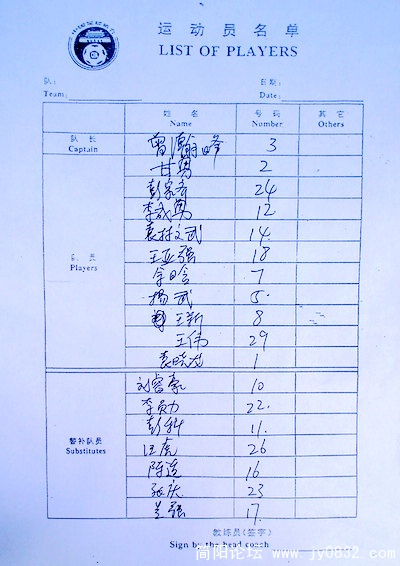 运动员名单
LIST OF PLAYERS
队: 日期:
Team: Date:
姓名 号码 其它
Name Number Others
队长
Captain
曾瀚峰 3
甘勇 2
彭家齐 24
李成勇 12
袁材文武 14
队员
Players
王亚强 18
余晗 7
杨武 5
王新 8
王伟 29
袁晓龙 1
刘睿豪 10
李贞力 22
彭科 11
替补队员
Substitutes
汪虎 26
陈逵 16
张庆 23
兰强 17
教练员(签字)
Sign by the head coach
简阳论坛 www.jy0832.com